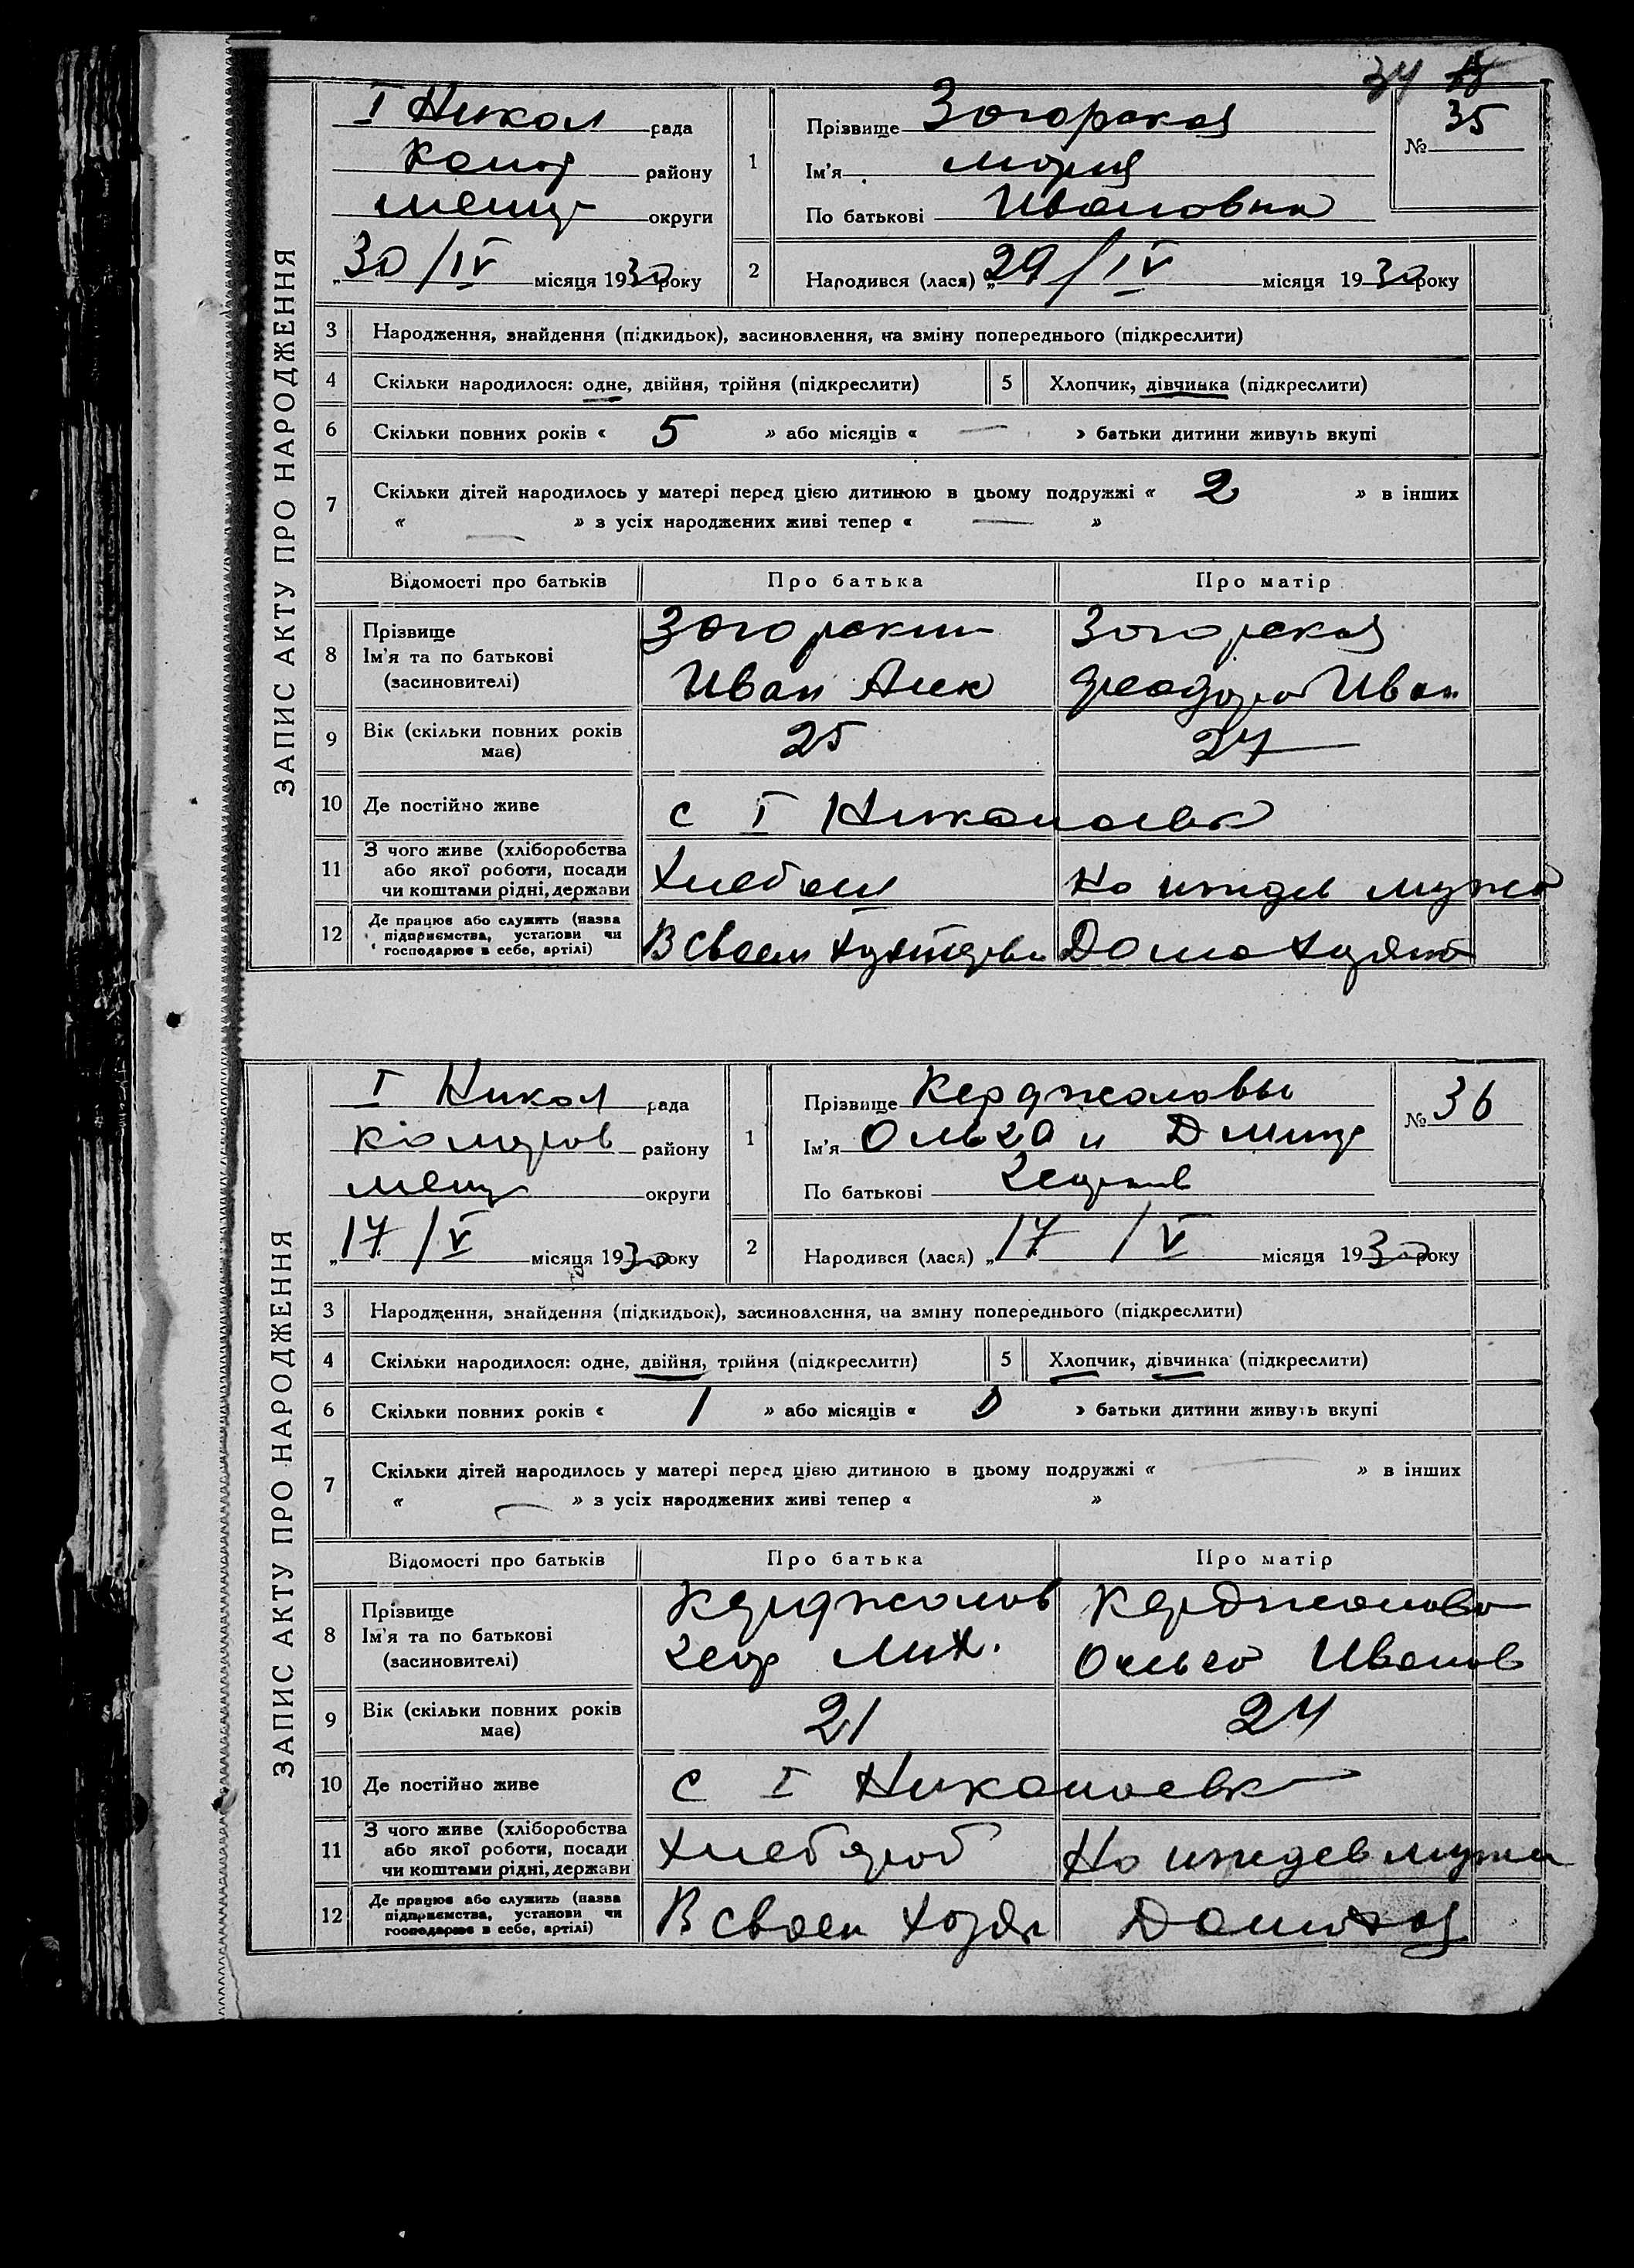 34 18
ЗАПИС АКТУ ПРО НАРОДЖЕННЯ
І Никол рада
району
округи
„30/IV місяця 1930 року
1
Прізвище Загорская
Ім'я Мария
По батькові Ивановна
№ 35
2 Народився (лася) „29/IV місяця 1930 року
3 Народження, знайдення (підкидьок), засиновлення, на зміну попереднього (підкреслити)
4 Скільки народилося: одне, двійня, трійня (підкреслити) 5 Хлопчик, дівчинка (підкреслити)
6 Скільки повних років « 5 » або місяців « — » батьки дитини живуть вкупі
7 Скільки дітей народилось у матері перед цією дитиною в цьому подружжі « 2 » в інших
« — » з усіх народжених живі тепер « — »
Відомості про батьків Про батька Про матір
8 Прізвище
Ім'я та по батькові
(засиновителі)
Загорский
Иван Алек
Загорская
Феодора Иван
9 Вік (скільки повних років має) 25 27
10 Де постійно живе с І Николаевк
11 З чого живе (хліборобства
або якої роботи, посади
чи коштами рідні, держави
На иждев мужа
12 Де працює або служить (назва
підприємства, установи чи
господарює в себе, артілі)
В своем
Дома
ЗАПИС АКТУ ПРО НАРОДЖЕННЯ
І Никол рада
району
округи
„17/V місяця 1930 року
1
Прізвище Керджаловы
Ім'я Ольга и Дмитр
По батькові
№ 36
2 Народився (лася) „17/V місяця 1930 року
3 Народження, знайдення (підкидьок), засиновлення, на зміну попереднього (підкреслити)
4 Скільки народилося: одне, двійня, трійня (підкреслити) 5 Хлопчик, дівчинка (підкреслити)
6 Скільки повних років « 1 » або місяців « » батьки дитини живуть вкупі
7 Скільки дітей народилось у матері перед цією дитиною в цьому подружжі « — » в інших
« — » з усіх народжених живі тепер « »
Відомості про батьків Про батька Про матір
8 Прізвище
Ім'я та по батькові
(засиновителі)
Керджалов
Геор Мих.
Керджалова
Ольга Иванов
9 Вік (скільки повних років має) 21 24
10 Де постійно живе с І Николаевк
11 З чого живе (хліборобства
або якої роботи, посади
чи коштами рідні, держави
Хлебороб
На иждев мужа
12 Де працює або служить (назва
підприємства, установи чи
господарює в себе, артілі)
В своем Хозяй
Домохоз